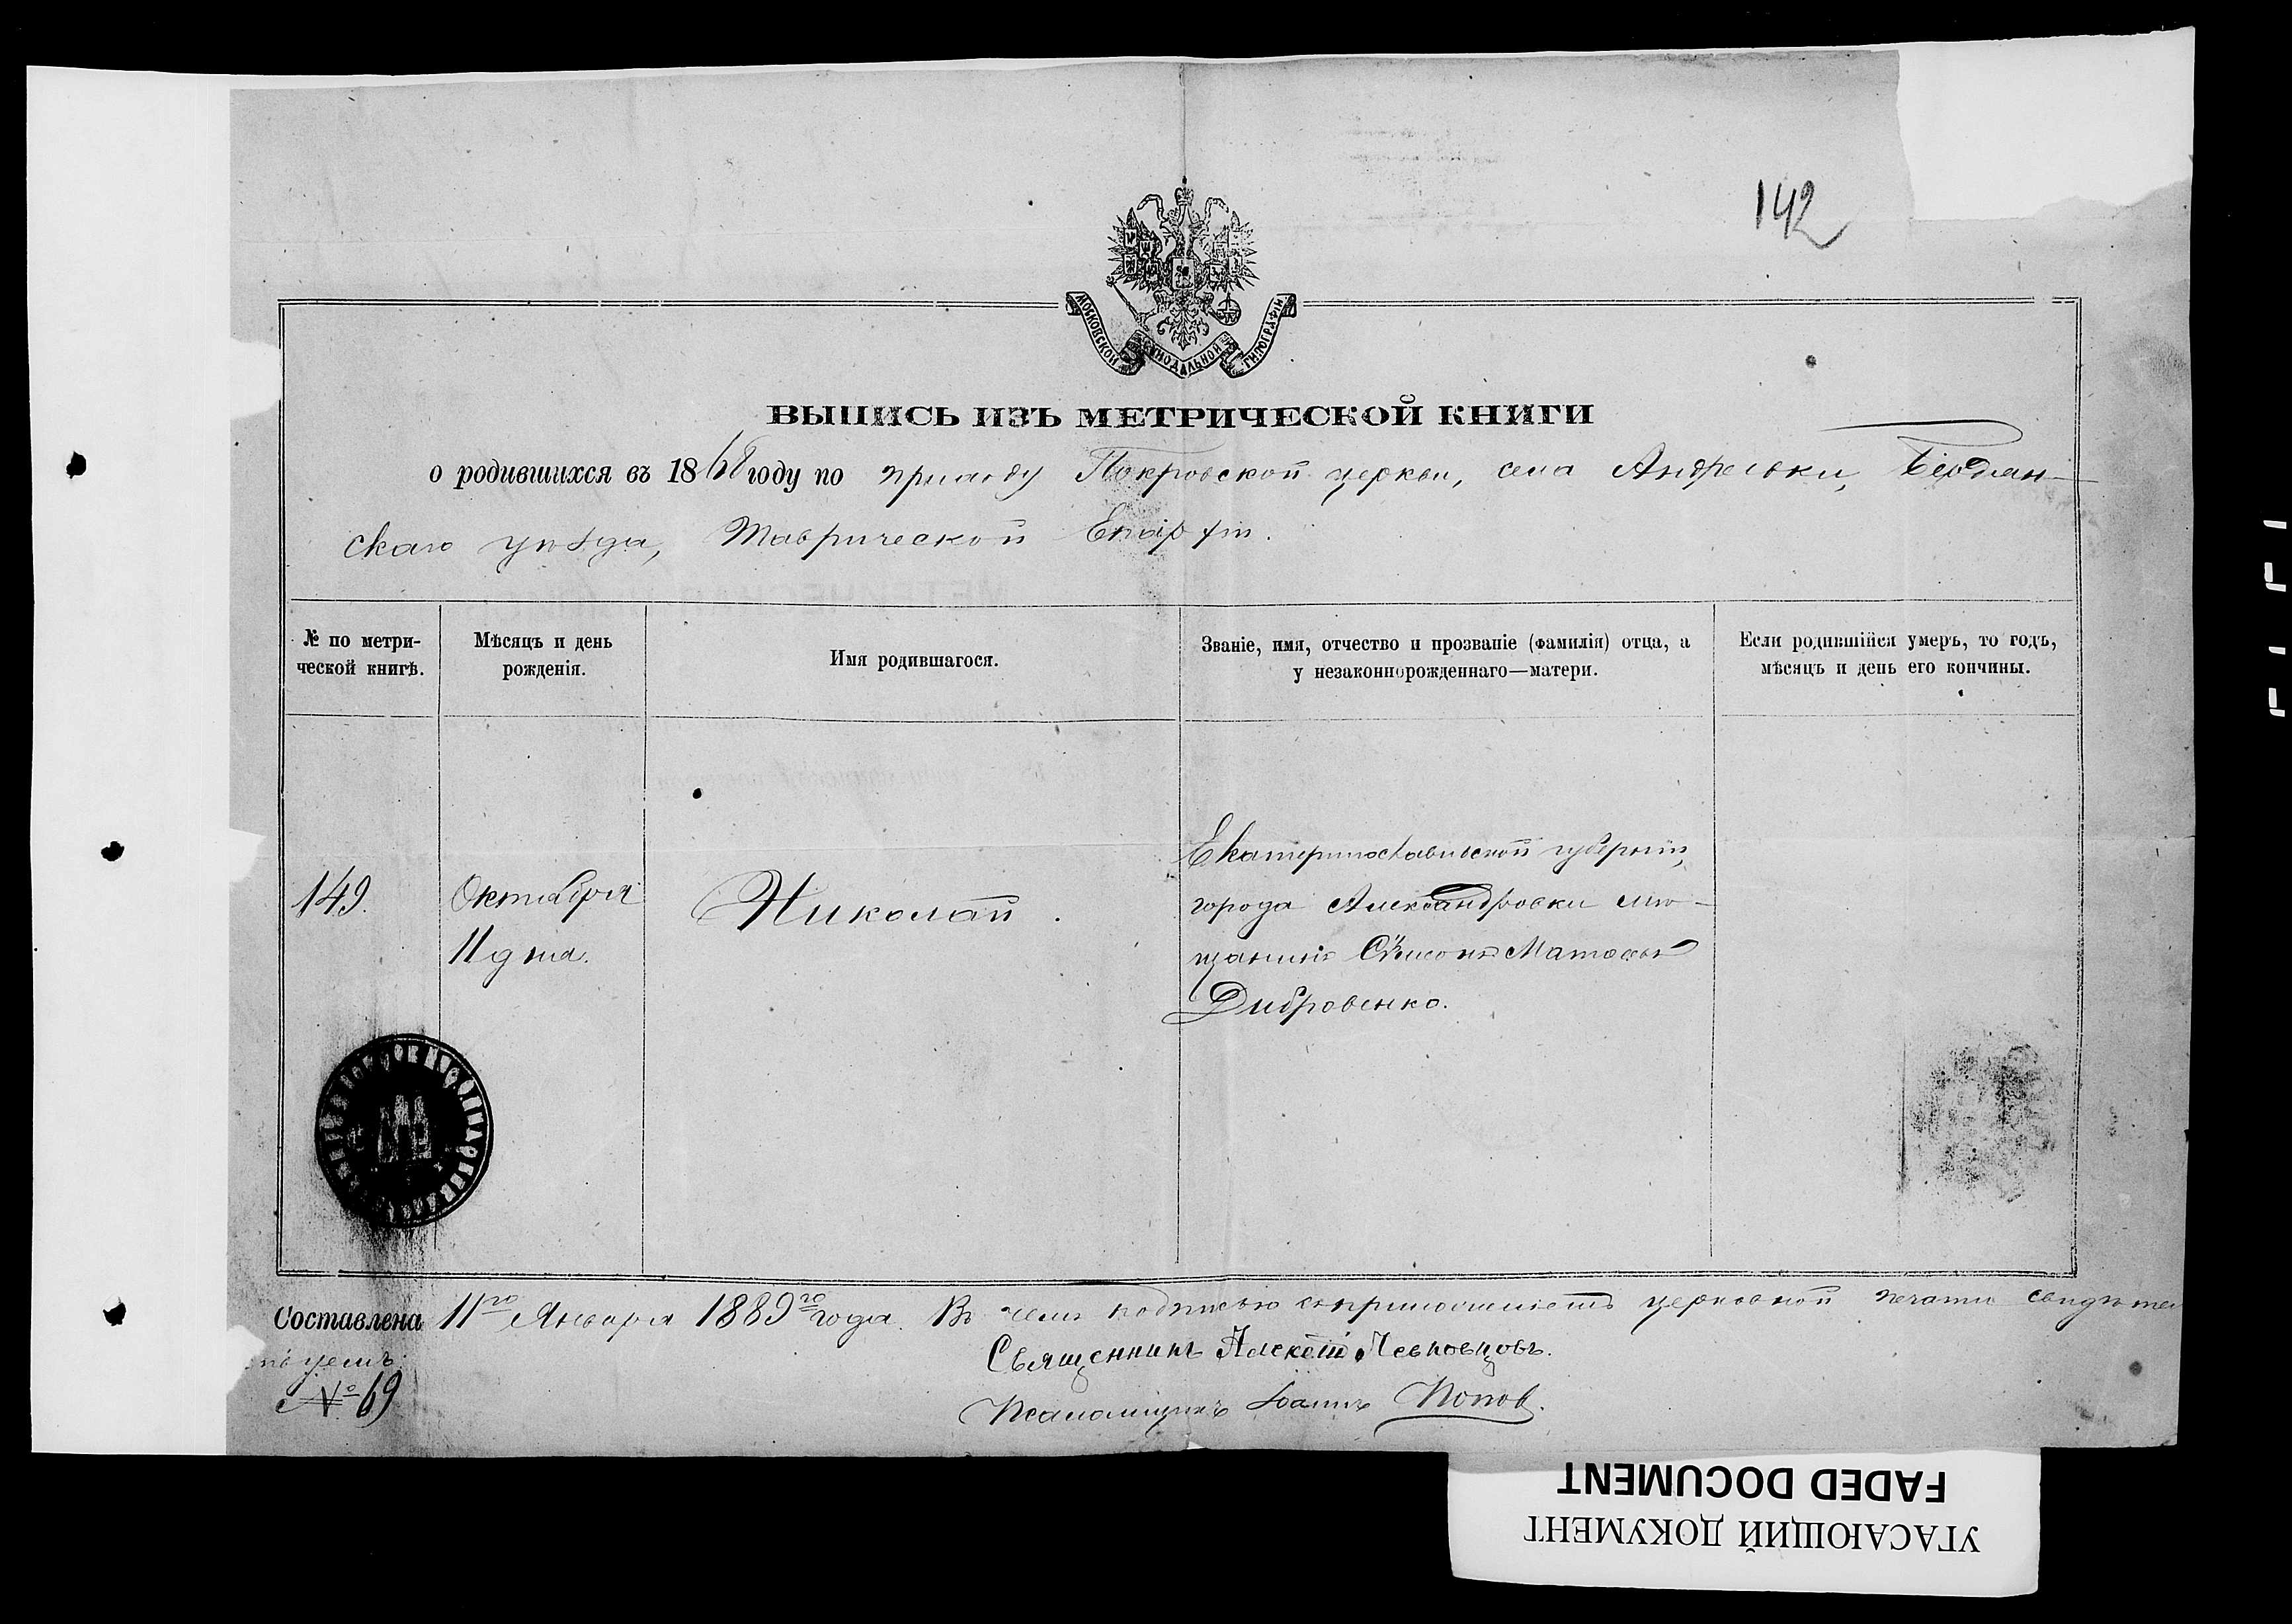 142
МОСКОВСКОЙ СИНОДАЛЬНОЙ ТИПОГРАФІИ
ВЫПИСЬ ИЗЪ МЕТРИЧЕСКОЙ КНИГИ
о родившихся въ 1868 году по приходу Покровской церкви, села Андреевки, Бердян-
скаго уѣзда, Таврической Епархіи.
№ по метри-
ческой книгѣ.
Мѣсяцъ и день
рожденія.
Имя родившагося.
Званіе, имя, отчество и прозваніе (фамилія) отца, а
у незаконнорожденнаго—матери.
Если родившійся умеръ, то годъ,
мѣсяцъ и день его кончины.
149.
Октября
11 дня.
Николай.
Екатеринославской губерніи,
города Александровки мѣ-
щанинъ Матѳеевъ
Дибровенко.
Составлена 11го Января 1889го года. Въ чемъ подписью съ приложеніемъ церковной печати свидѣтель
ствуемъ:
№ 69
Священникъ Алексѣй Левковцовъ.
Псаломщикъ Іоаннъ Попов.
FADED DOCUMENT
УГАСАЮЩИЙ ДОКУМЕНТ